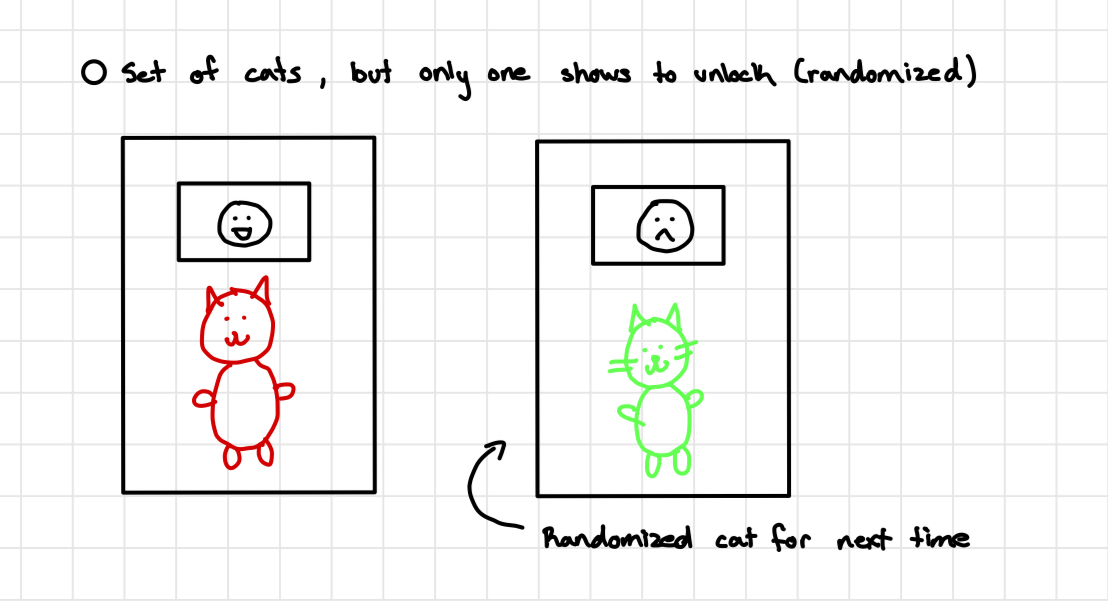 Set of cats, but only one shows to unlock (randomized)
Randomized cat for next time